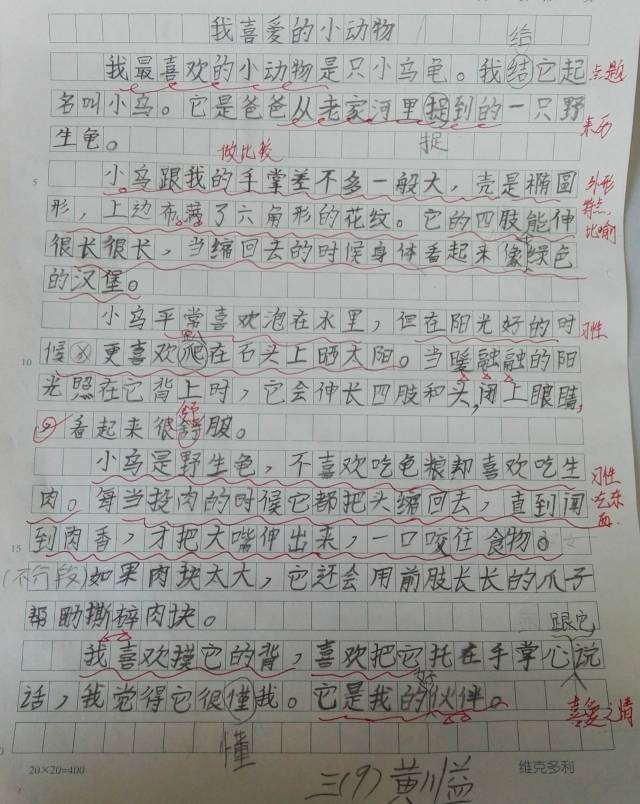 我喜爱的小动物
给
我最喜欢的小动物是只小乌龟。我结它起
点题
名叫小乌。它是爸爸从老家河里捉到的一只野
来历
生龟。
捉
做比较
小乌跟我的手掌差不多一般大，壳是椭圆
外形特点，比喻
形，上边布满了六角形的花纹。它的四肢能伸
很长很长，当缩回去的时候身体看起来像绿色
的汉堡。
小乌平常喜欢泡在水里，但在阳光好的时
习性
候 更喜欢爬在石头上晒太阳。当暖融融的阳
光照在它背上时，它会伸长四肢和头，闭上眼睛，
看起来很舒服。
舒
小乌是野生龟，不喜欢吃龟粮却喜欢吃生
习性 吃东西
肉。每当投肉的时候它都把头缩回去，直到闻
到肉香，才把大嘴伸出来，一口咬住食物。
(不分段)如果肉块太大，它还会用前肢长长的爪子
帮助撕碎肉块。
跟它
我喜欢摸它的背，喜欢把它托在手掌心说
话，我觉得它很懂我。它是我的伙伴。
好
喜爱之情
懂
5
10
15
20×20=400
维克多利
三(9) 黄川益